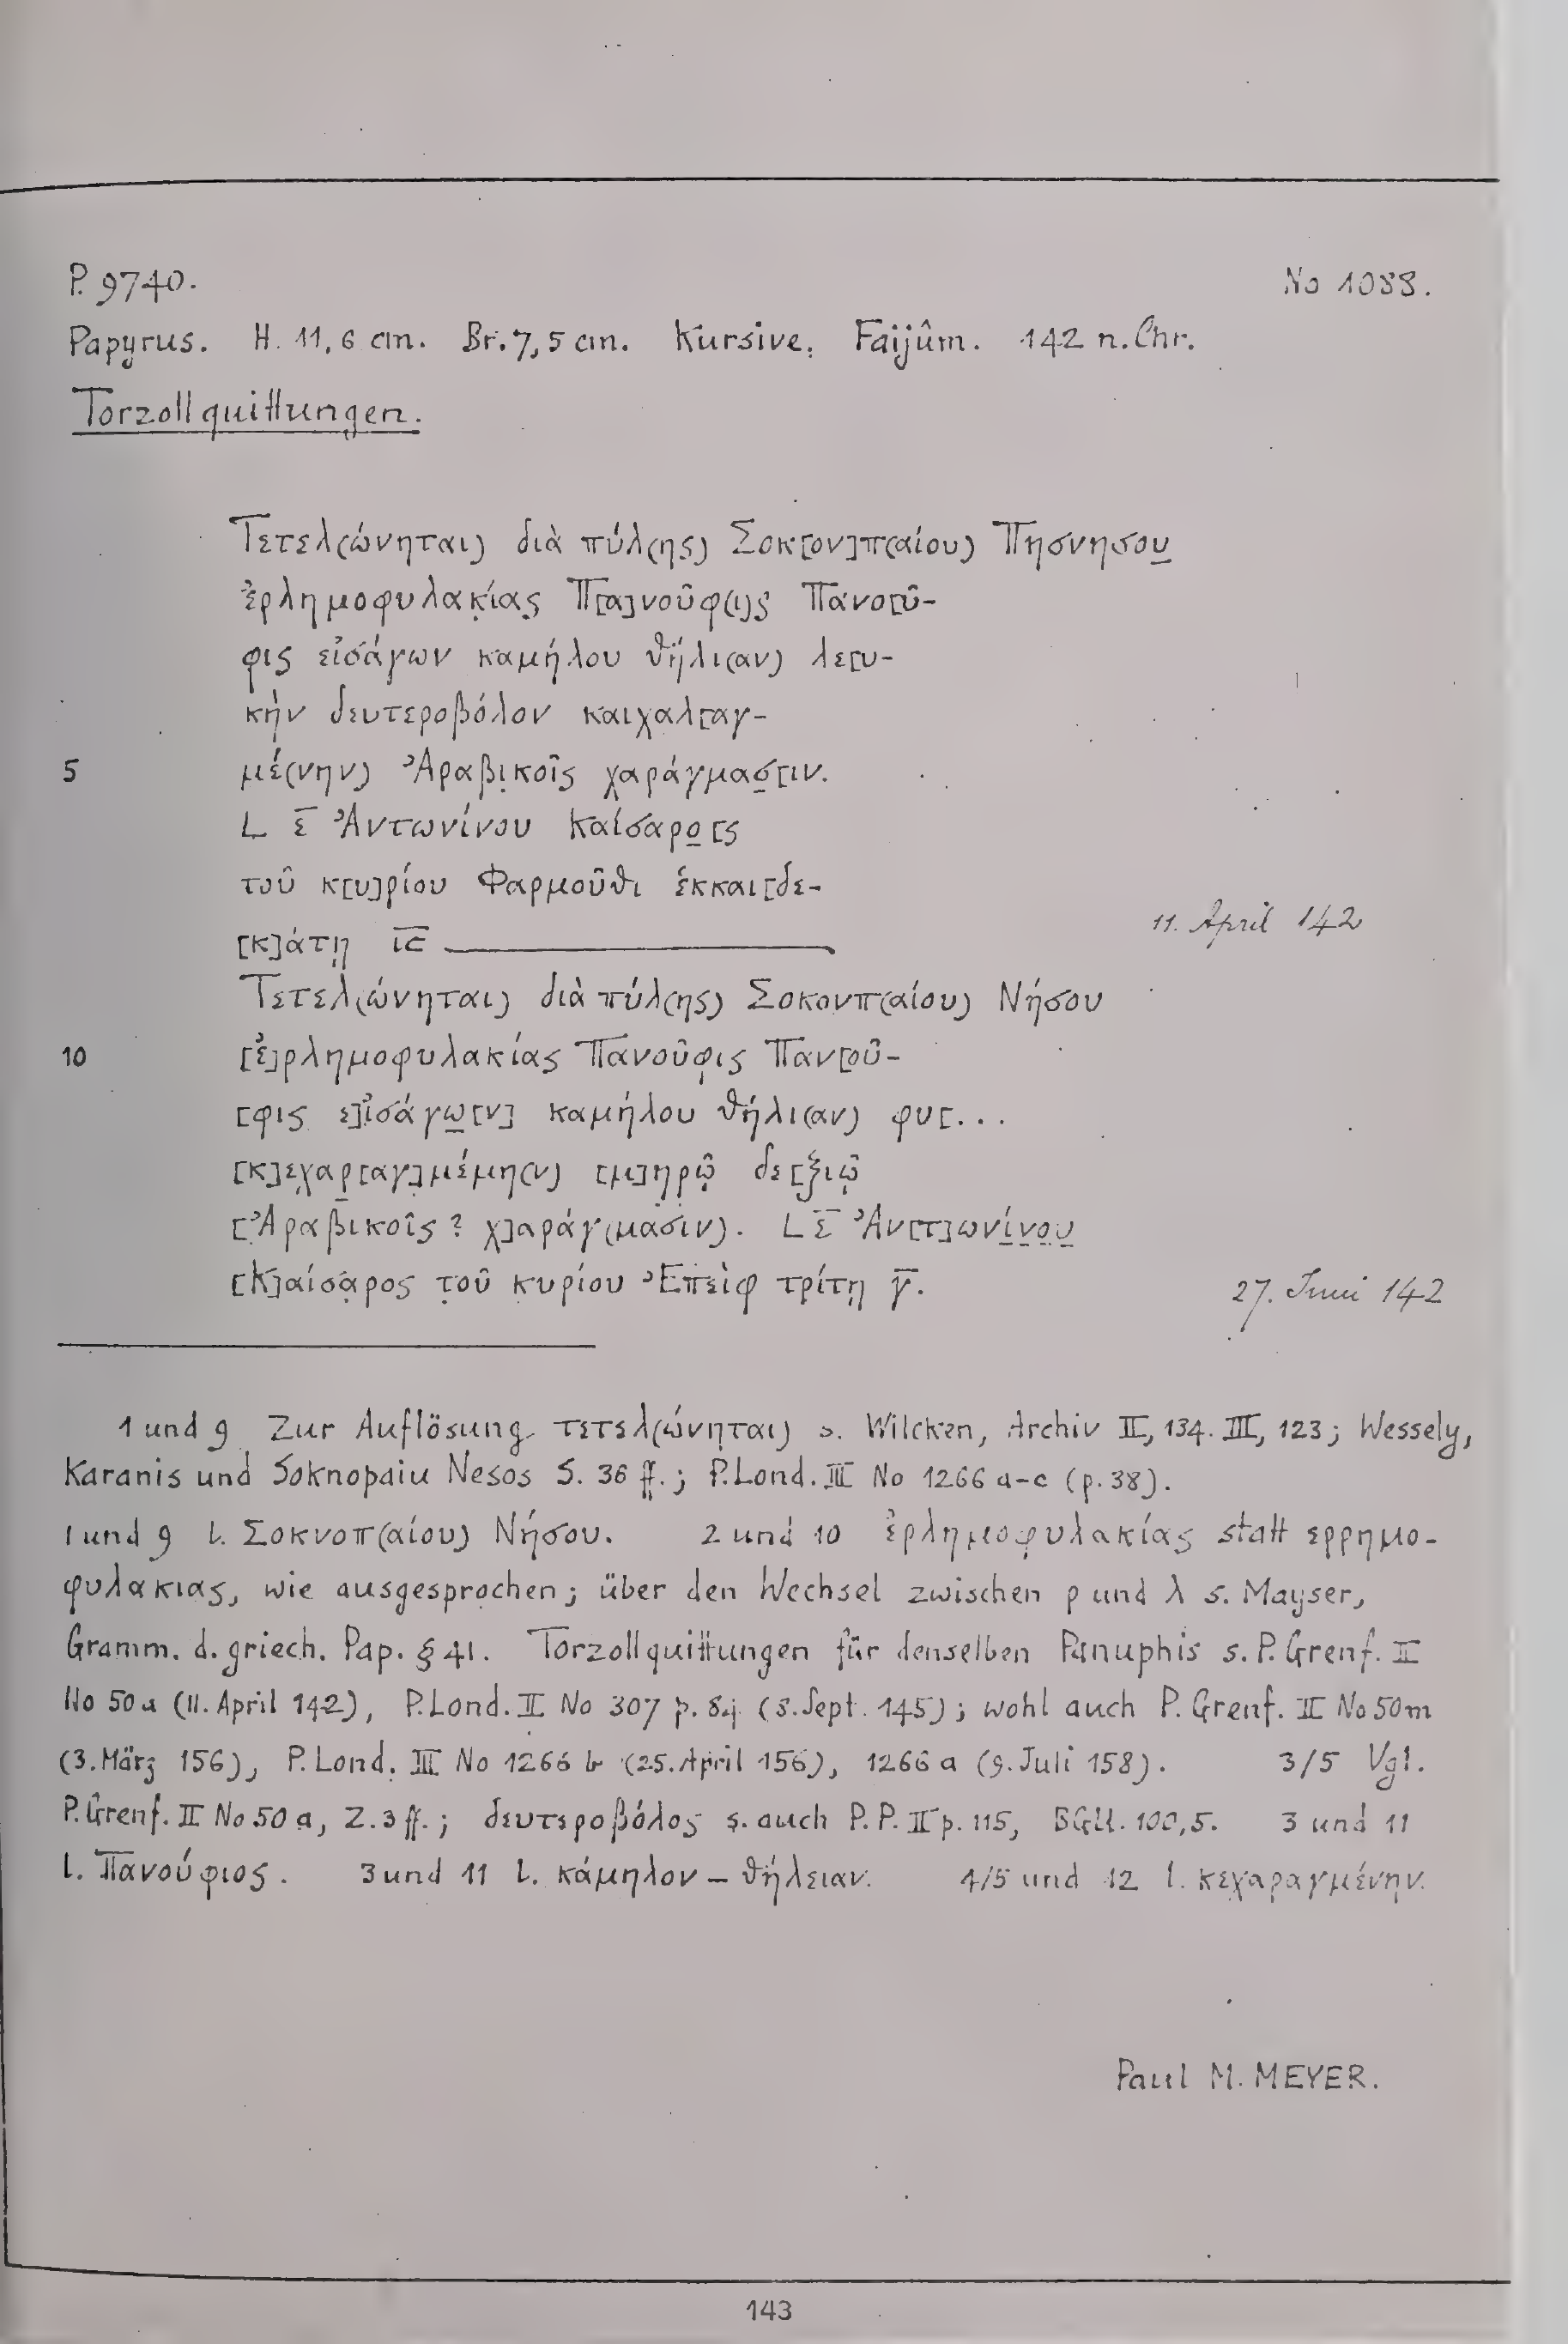 P. 9740.
No 1088.
Papyrus. H. 11,6 cm. Br. 7,5 cm. Kursive. Faijûm. 142 n. Chr.
Torzollquittungen.
Τετελ(ώνηται) διὰ πύλ(ης) Σοκ[ον]π(αίου) Πησνησου
ἐρλημοφυλακίας Π[α]νοῦφ(ι)ς Πανο[ῦ-
φις εἰσάγων καμήλου θήλι(αν) λε[υ-
κὴν δευτεροβόλον καιχαλ[αγ-
5 μέ(νην) Ἀραβικοῖς χαράγμασ[ιν.
L ε̅ Ἀντωνίνου Καίσαρο[ς
τοῦ κ[υ]ρίου Φαρμοῦθι ἑκκαι[δε-
[κ]άτῃ ι̅ϛ̅
11. April 142
Τετελ(ώνηται) διὰ πύλ(ης) Σοκονπ(αίου) Νήσου
10 [ἐ]ρλημοφυλακίας Πανοῦφις Παν[οῦ-
[φις ε]ἰσάγω[ν] καμήλου θήλι(αν) φυ[...
[κ]εχαρ[αγ]μέμη(ν) [μ]ηρῷ δε[ξιῷ
[Ἀραβικοῖς? χ]αράγ(μασιν). L ε̅ Ἀν[τ]ωνίνου
[Κ]αίσαρος τοῦ κυρίου Ἐπεὶφ τρίτῃ γ̅.
27. Juni 142
1 und 9 Zur Auflösung τετελ(ώνηται) s. Wilcken, Archiv II, 134. III, 123; Wessely,
Karanis und Soknopaiu Nesos S. 36 ff.; P. Lond. III No 1266 a-c (p. 38).
1 und 9 l. Σοκνοπ(αίου) Νήσου. 2 und 10 ἐρλημοφυλακίας statt ερρημο-
φυλακιας, wie ausgesprochen; über den Wechsel zwischen ρ und λ s. Mayser,
Gramm. d. griech. Pap. § 41. Torzollquittungen für denselben Panuphis s. P. Grenf. II
No 50a (11. April 142), P. Lond. II No 307 p. 84 (8. Sept. 145); wohl auch P. Grenf. II No 50m
(3. März 156), P. Lond. III No 1266 b (25. April 156), 1266 a (9. Juli 158). 3/5 Vgl.
P. Grenf. II No 50 a, Z. 3 ff.; δευτεροβόλος s. auch P. P. II p. 115, BGU. 100,5. 3 und 11
l. Πανούφιος. 3 und 11 l. κάμηλον – θήλειαν. 4/5 und 12 l. κεχαραγμένην.
Paul M. MEYER.
143